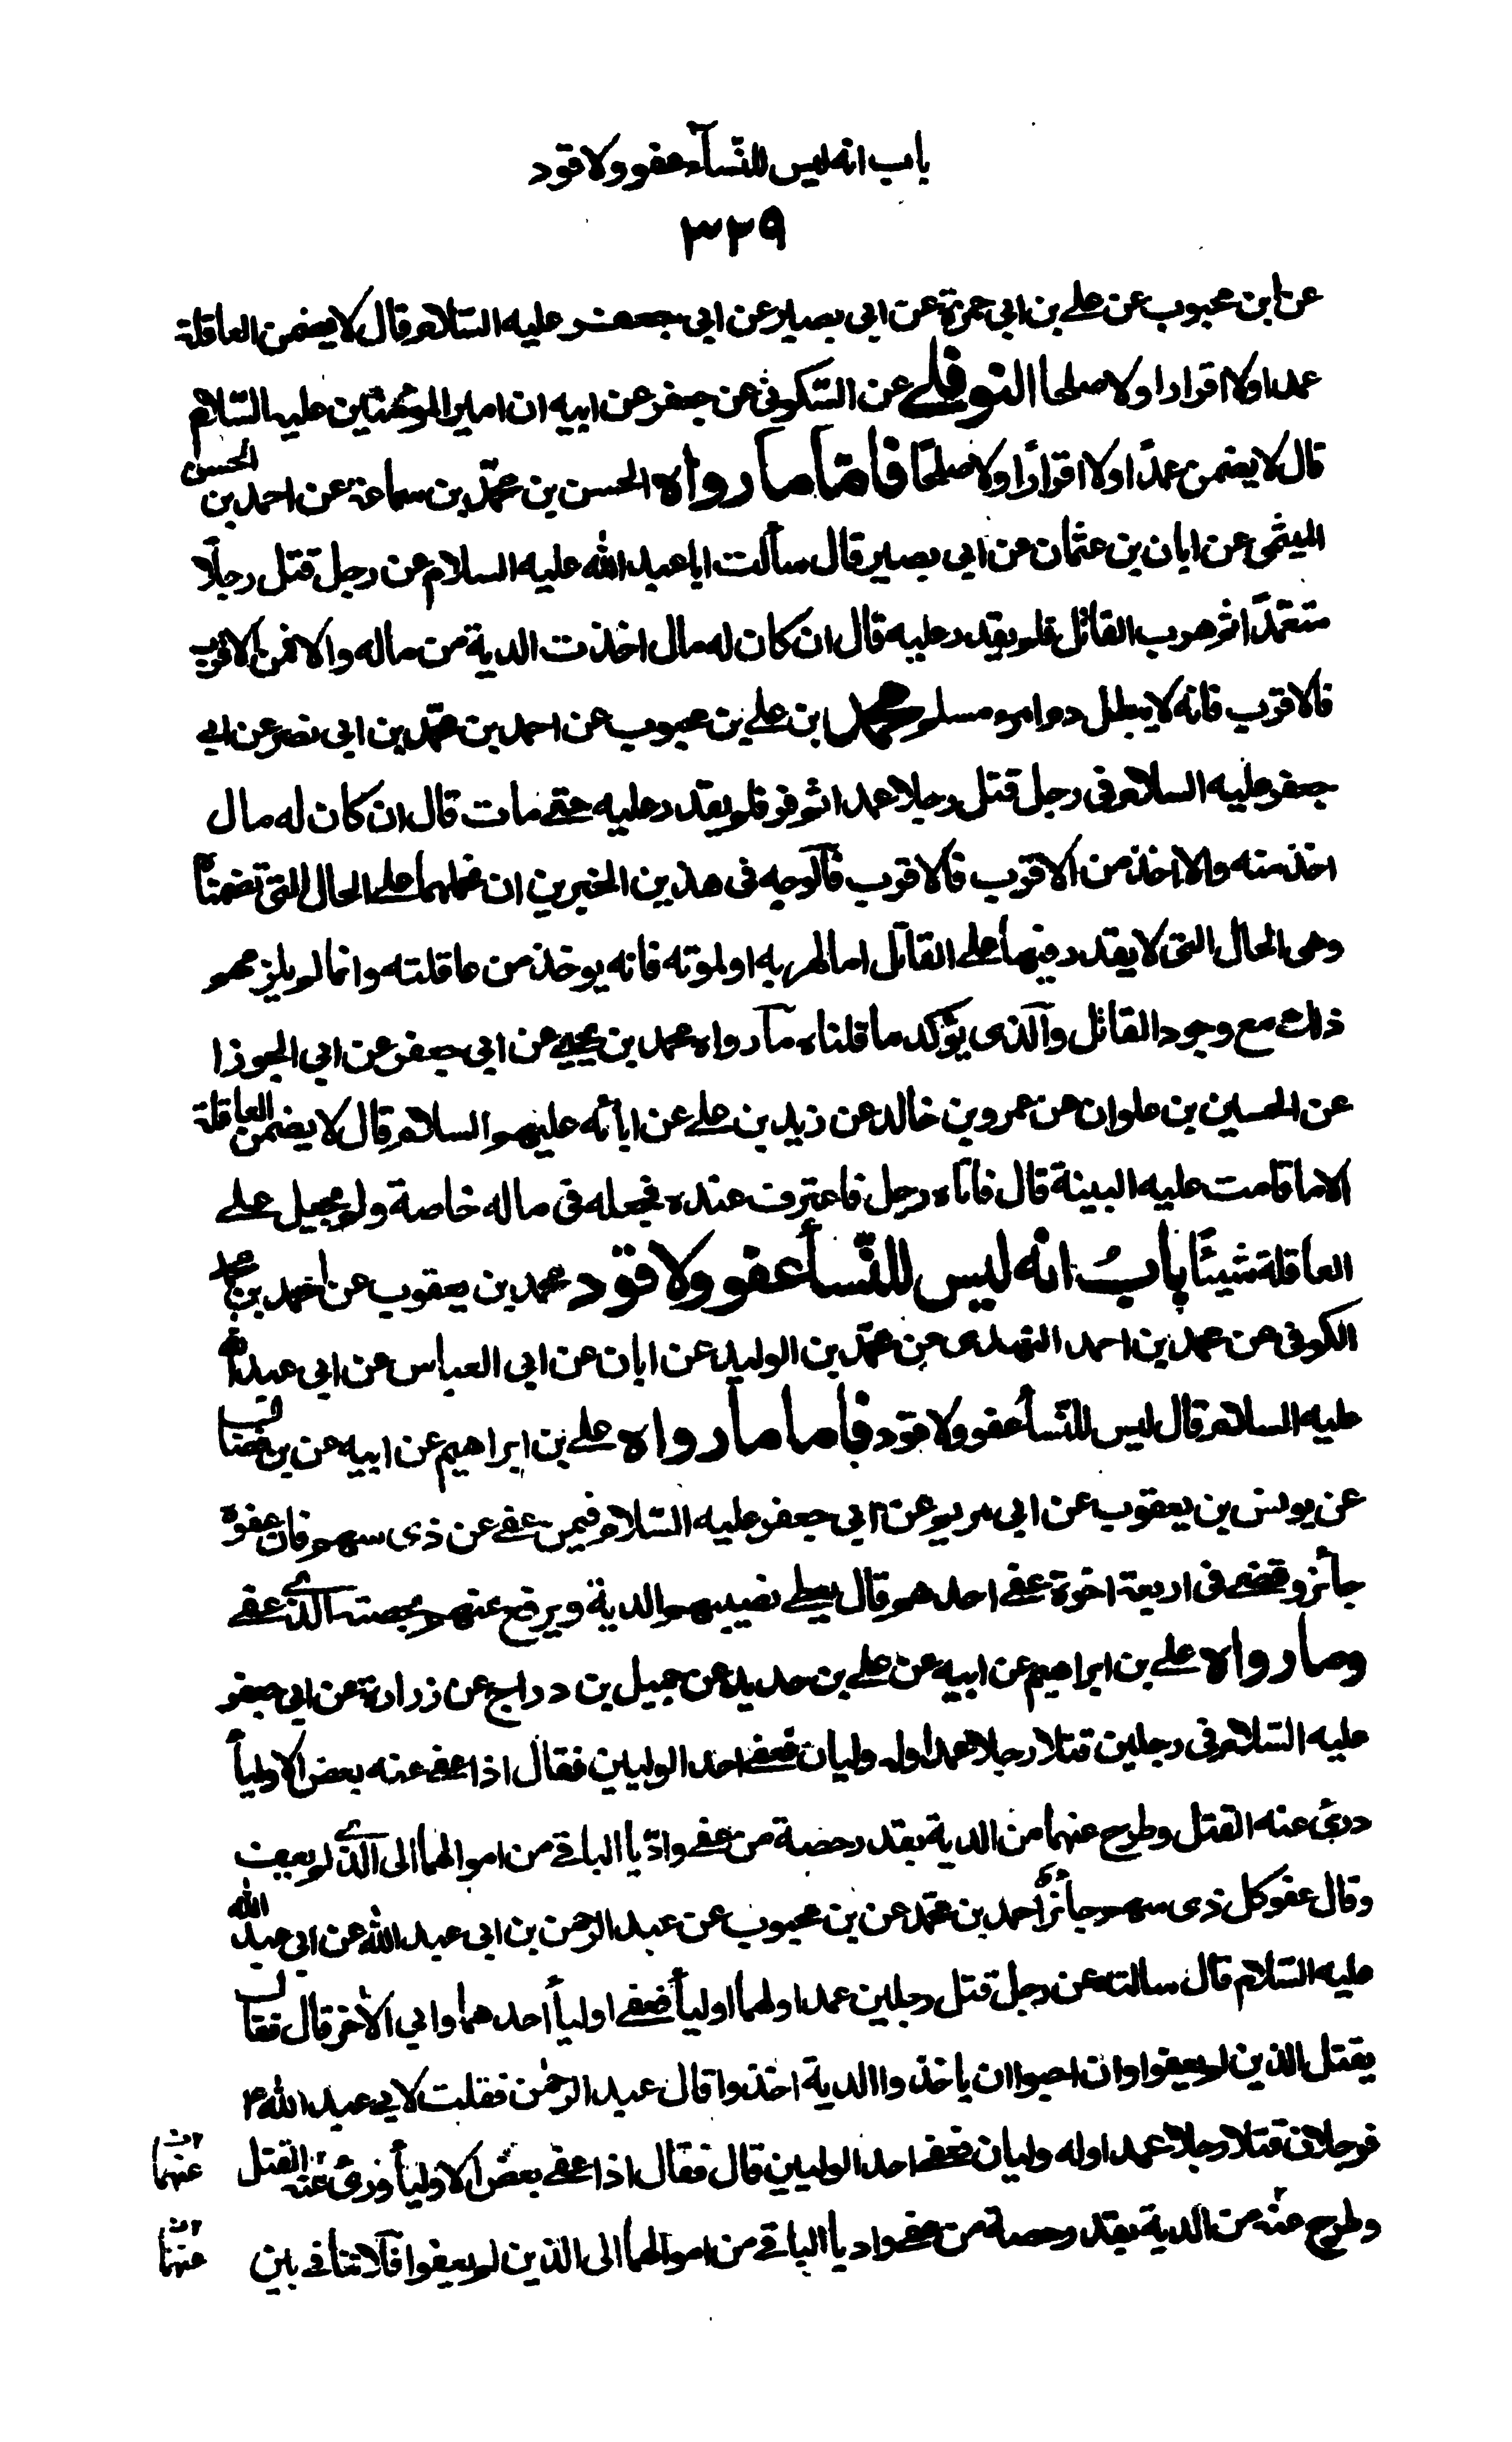 باب انه ليس للنّسآء عفو ولا قود
٣٣٩
عن ابن محبوب عن علے بن ابي حمزة عن ابي بصير عن ابي جعفر عليه السّلام قال لا يضمن العاقلة
عمدا ولا اقرارا ولا صلحا النوفلے عن السّكونی عن جعفر عن ابيه ان امير المؤمنين عليه السّلام
قال لا يضمن عمدًا ولا اقرارًا ولا صلحًا فامّا ما رواه الحسن بن محمّد بن سماعة عن احمد بن الحسن
الميثمی عن ابان بن عثمان عن ابي بصير قال سألت ابا عبد الله عليه السلام عن رجل قتل رجلًا
متعمّدًا ثم هرب القاتل فلم يقدر عليه قال ان كان له مال اخذت الدية من ماله والا فمن الاقرب
فالاقرب فانه لا يبطل دم امرء مسلم محمد ابن علے بن محبوب عن احمد بن محمّد بن ابی نصر عن ابی
جعفر عليه السلام فی رجل قتل رجلا عمدا ثم فر فلم يقدر عليه حتے مات قال ان كان له مال
اخذ منه والا اخذ من الاقرب فالاقرب فالوجه فی هذين الخبرين ان نحملهما علے الحال التی تضمنتاه
وهی الحال التی لا يقدر فيها علے القاتل اما لهربه او لموته فانه يوخذ من عاقلته وانما لم يلزمهم
ذلك مع وجود القاتل والذی يؤكد ما قلناه ما رواه محمد بن يحيے عن ابی جعفر عن ابی الجوزا
عن الحسين بن علوان عن عمرو بن خالد عن زيد بن علے عن ابائه عليهم السلام قال لا يضمن العاقلة
الا ما قامت عليه البينة قال فاتاه رجل فاعترف عنده فجعله فی ماله خاصة ولم يجعل علے
العاقلة شيئًا بابُ انه ليس للنّسأ عفو ولا قود محمد بن يعقوب عن احمد بن محمد
الكوفی عن محمد بن احمد النهدی عن محمّد بن الوليد عن ابان عن ابی العباس عن ابی عبد الله
عليه السلام قال ليس للنّسأ عفو ولا قود فاما ما رواه علے بن ابراهيم عن ابيه عن بن فضال
عن يونس بن يعقوب عن ابی مريم عن ابی جعفر عليه السّلام فيمن عفے عن ذی سهم فان عفوه
جائز وقضے فی اربعة اخوة عفے احدهم قال يعطے نصيبهم الدية ويرفع عنهم بحصة الذے عفے
وما رواه علے بن ابراهيم عن ابيه عن علے بن حديد عن جميل بن دراج عن زرارة عن ابی جعفر
عليه السّلام فی رجلين قتلا رجلا عمدا وله وليان فعفے احد الوليين فقال اذا عفے عنه بعض الاولياأ
درئ عنه القتل وطرح عنهما من الدية بقدر حصة من عفے وادّيا الباقے من اموالهما الی الذے لم يعف
وقال عفو كل ذی سهم جائز احمد بن محمّد عن بن محبوب عن عبد الرحمن بن ابی عبد الله عن ابی عبد الله
عليه السّلام قال سالته عن رجل قتل رجلين عمدا ولهما اوليأ فعفے اوليأ احدهما وابی الاخر قال فقال
يقتل الذين لم يعفوا وان احبوا ان ياخذوا الدية اخذوا قال عبد الرحمٰن فقلت لابی عبد الله ع
فرجلان قتلا رجلا عمدا وله وليان فعفے احد الوليين قال فقال اذا عفے بعض الاوليأ درئ عنه القتل
عنهما
وطرح عنه من الدية بقدر حصة من عفے واديا الباقے من اموالهما الی الذين لم يعفوا فلا تنافی بين
عنهما